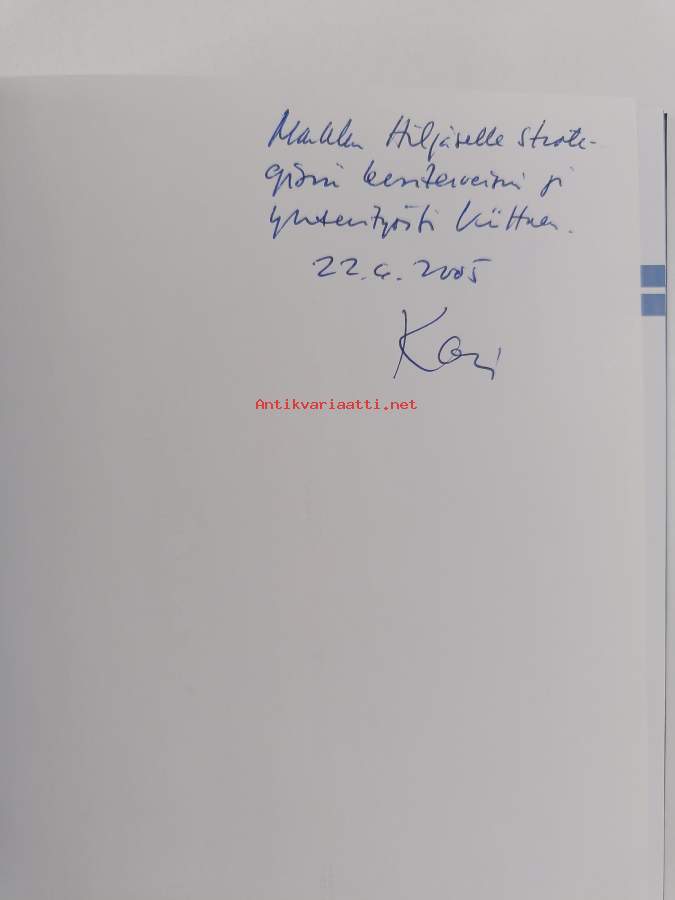 Markku Hiljaselle strate-
gisin kesäterveisin ja
yhteistyöstä kiittäen.
22.6.2005
Kari
Antikvariaatti.net